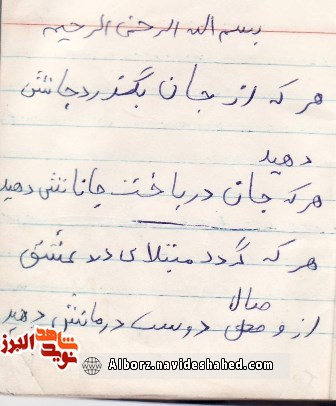 بسم الله الرحمن الرحیم
هر که از جان بگذرد جانش
دهید
هر که جان در باخت جانانش دهید
هر که گردد مبتلای درد عشق
از وصال دوست درمانش دهید
شاهد
نوید
البرز
Alborz.navideshahed.com